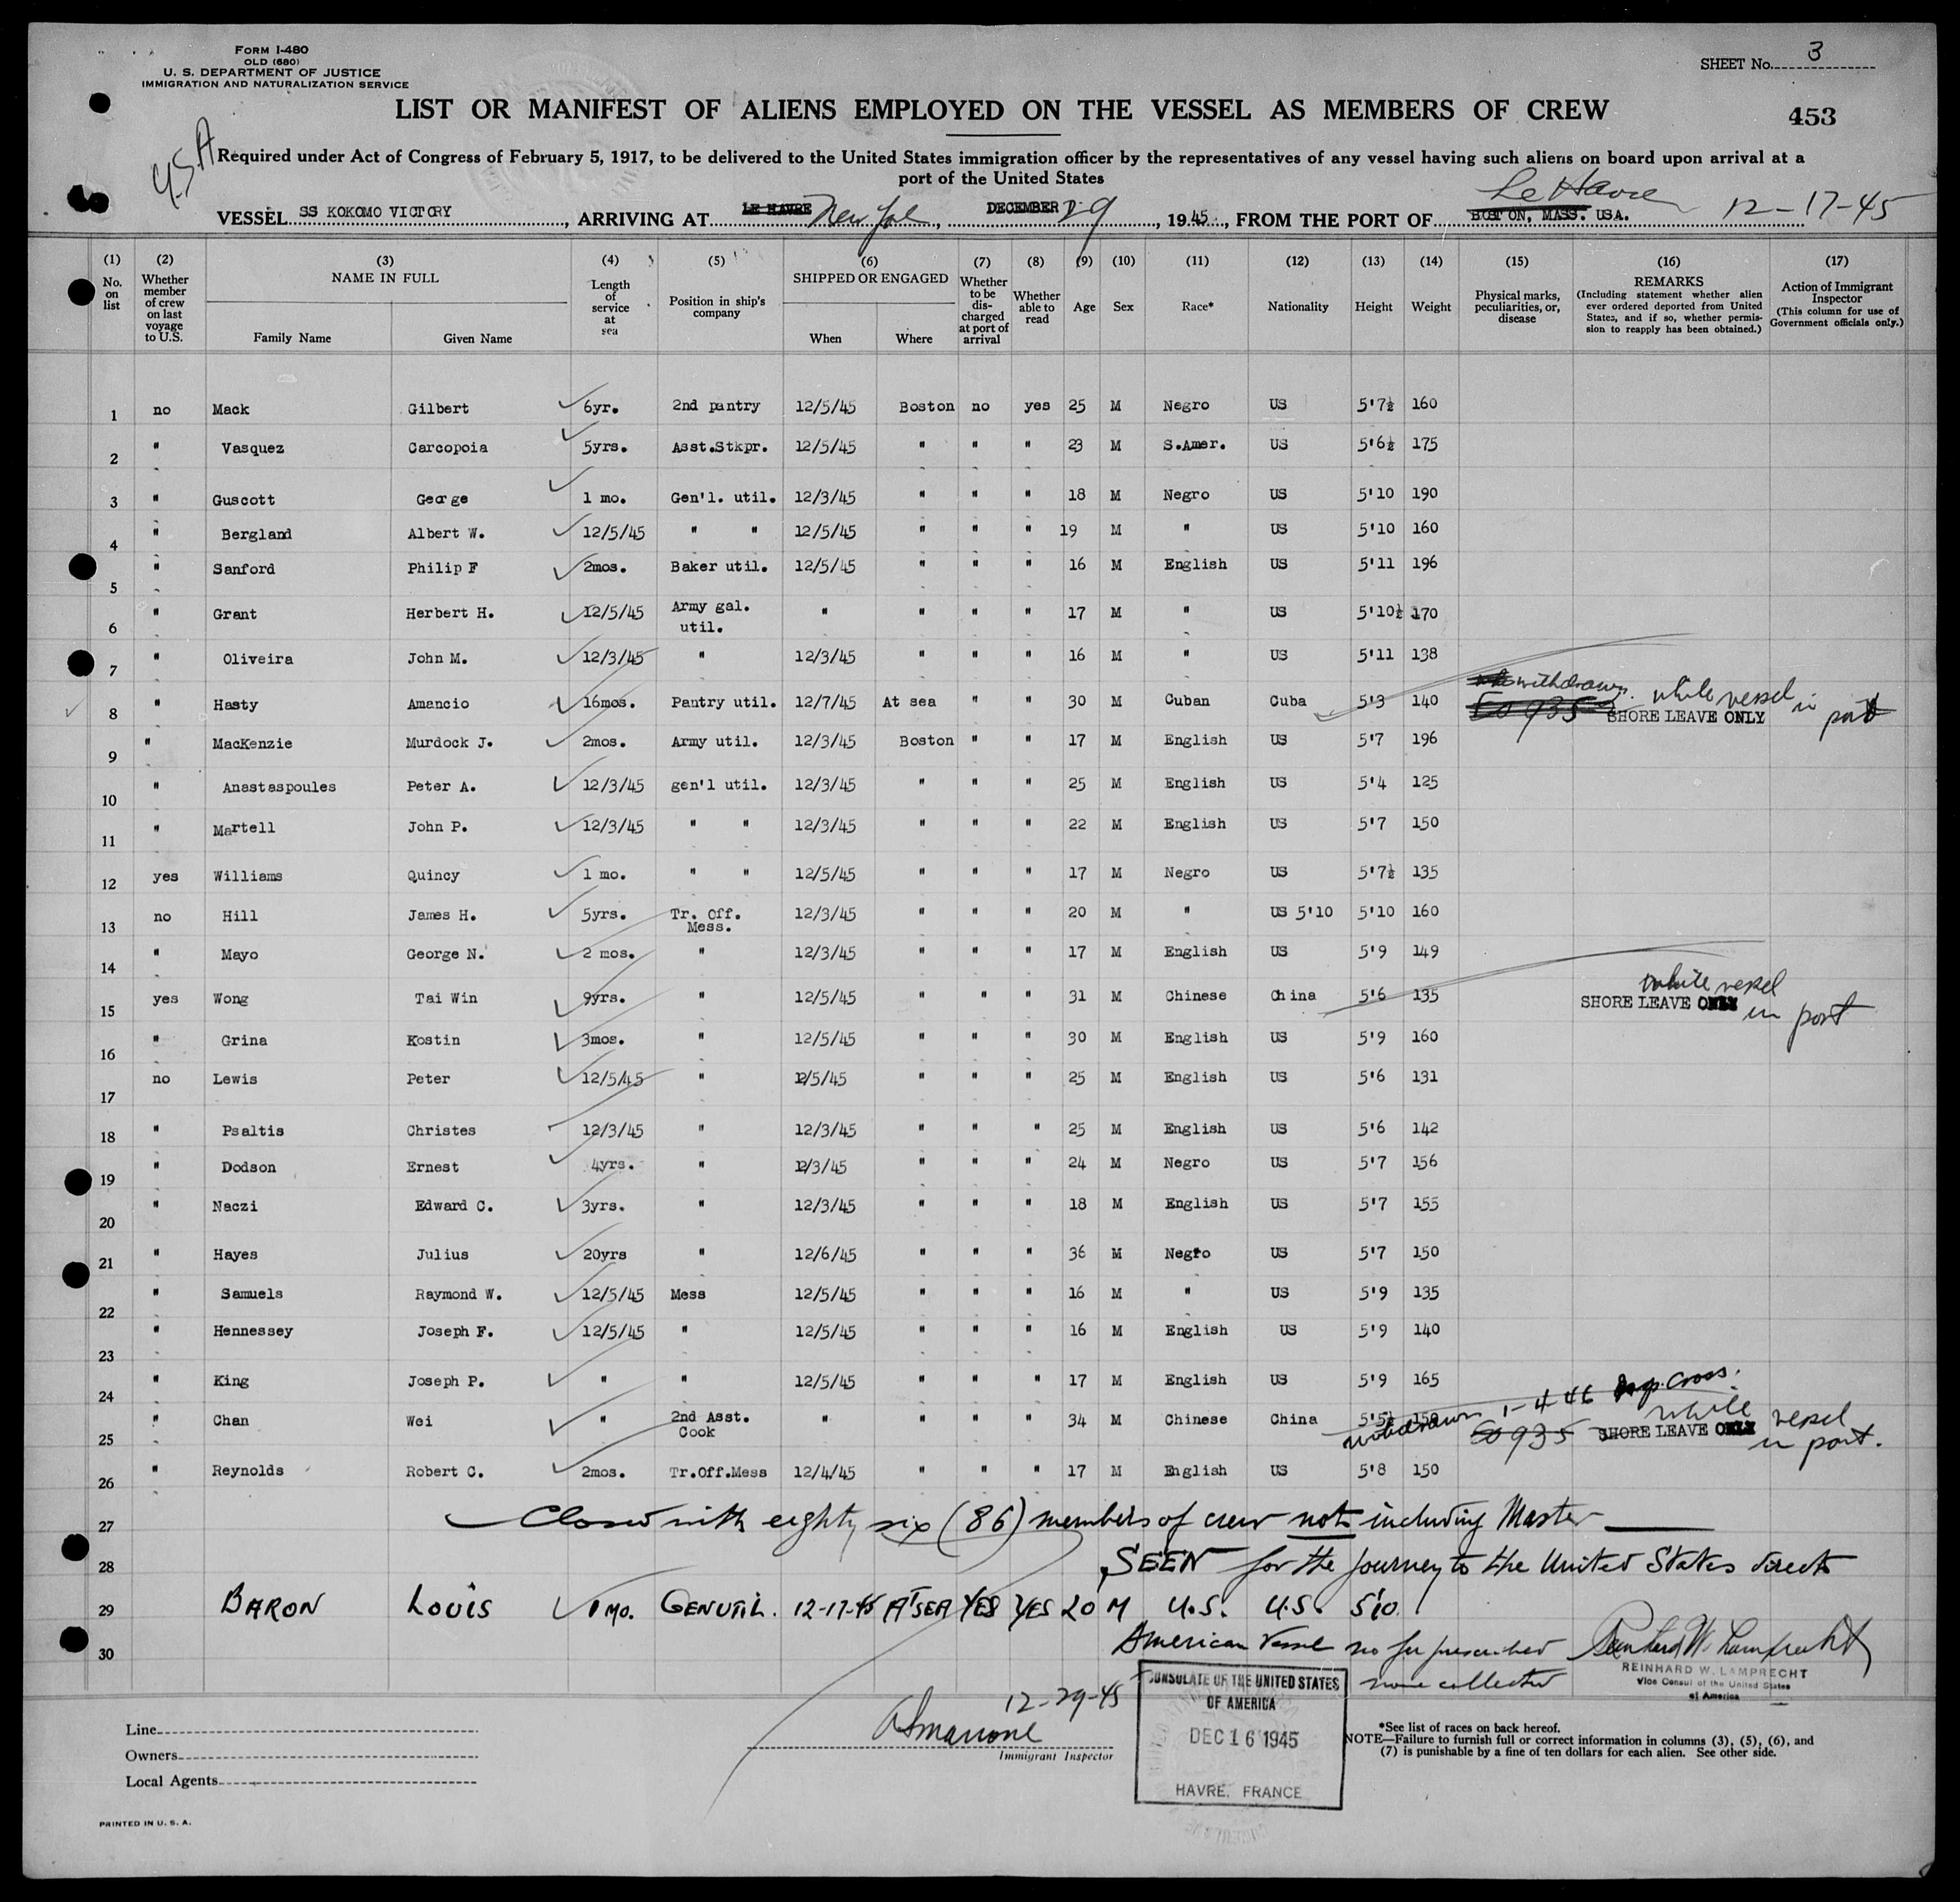 FORM I-480
OLD (680)
U. S. DEPARTMENT OF JUSTICE
IMMIGRATION AND NATURALIZATION SERVICE
SHEET No. 3
LIST OR MANIFEST OF ALIENS EMPLOYED ON THE VESSEL AS MEMBERS OF CREW
453
Required under Act of Congress of February 5, 1917, to be delivered to the United States immigration officer by the representatives of any vessel having such aliens on board upon arrival at a
port of the United States
VESSEL SS KOKOMO VICTORY, ARRIVING AT LE HAVRE New York, DECEMBER 29, 1945, FROM THE PORT OF BOSTON, MASS. USA. Le Havre 12-17-45
(1) No. on list
(2) Whether member of crew on last voyage to U.S.
(3) NAME IN FULL Family Name Given Name
(4) Length of service at sea
(5) Position in ship's company
(6) SHIPPED OR ENGAGED When Where
(7) Whether to be discharged at port of arrival
(8) Whether able to read
(9) Age
(10) Sex
(11) Race*
(12) Nationality
(13) Height
(14) Weight
(15) Physical marks, peculiarities, or, disease
(16) REMARKS (Including statement whether alien ever ordered deported from United States, and if so, whether permission to reapply has been obtained.)
(17) Action of Immigrant Inspector (This column for use of Government officials only.)
1 no Mack Gilbert 6yr. 2nd pantry 12/5/45 Boston no yes 25 M Negro US 5'7½ 160
2 " Vasquez Garcopoia 5yrs. Asst.Stkpr. 12/5/45 " " " 23 M S.Amer. US 5'6½ 175
3 " Guscott George 1 mo. Gen'l. util. 12/3/45 " " " 18 M Negro US 5'10 190
4 " Bergland Albert W. 12/5/45 " " 12/5/45 " " " 19 M " US 5'10 160
5 " Sanford Philip F 2mos. Baker util. 12/5/45 " " " 16 M English US 5'11 196
6 " Grant Herbert H. 12/5/45 Army gal. util. " " " " 17 M " US 5'10½ 170
7 " Oliveira John M. 12/3/45 " 12/3/45 " " " 16 M " US 5'11 138
8 " Hasty Amancio 16mos. Pantry util. 12/7/45 At sea " " 30 M Cuban Cuba 5'3 140 withdrawn 935 SHORE LEAVE ONLY while vessel in port
9 " MacKenzie Murdock J. 2mos. Army util. 12/3/45 Boston " " 17 M English US 5'7 196
10 " Anastaspoules Peter A. 12/3/45 gen'l util. 12/3/45 " " " 25 M English US 5'4 125
11 " Martell John P. 12/3/45 " " 12/3/45 " " " 22 M English US 5'7 150
12 yes Williams Quincy 1 mo. " " 12/5/45 " " " 17 M Negro US 5'7½ 135
13 no Hill James H. 5yrs. Tr. Off. Mess. 12/3/45 " " " 20 M " US 5'10 5'10 160
14 " Mayo George N. 2 mos. " 12/3/45 " " " 17 M English US 5'9 149
15 yes Wong Tai Win 9yrs. " 12/5/45 " " " 31 M Chinese China 5'6 135 SHORE LEAVE ONLY while vessel in port
16 " Grina Kostin 3mos. " 12/5/45 " " " 30 M English US 5'9 160
17 no Lewis Peter 12/5/45 " 12/5/45 " " " 25 M English US 5'6 131
18 " Psaltis Christes 12/3/45 " 12/3/45 " " " 25 M English US 5'6 142
19 " Dodson Ernest 4yrs. " 12/3/45 " " " 24 M Negro US 5'7 156
20 " Naczi Edward C. 3yrs. " 12/3/45 " " " 18 M English US 5'7 155
21 " Hayes Julius 20yrs " 12/6/45 " " " 36 M Negro US 5'7 150
22 " Samuels Raymond W. 12/5/45 Mess 12/5/45 " " " 16 M " US 5'9 135
23 " Hennessey Joseph F. 12/5/45 " 12/5/45 " " " 16 M English US 5'9 140
24 " King Joseph P. " " 12/5/45 " " " 17 M English US 5'9 165
25 " Chan Wei " 2nd Asst. Cook " " " " 34 M Chinese China 5'5½ 150 withdrawn 1-4-46 935 SHORE LEAVE ONLY while vessel in port.
26 " Reynolds Robert C. 2mos. Tr.Off.Mess 12/4/45 " " " 17 M English US 5'8 150
27 Closed with eighty six (86) members of crew not including Master
28 SEEN for the journey to the United States direct
29 BARON LOUIS 1 MO. GEN UTIL. 12-17-45 AT SEA YES YES 20 M U.S. U.S. 5'10
30 American Vessel no fee prescribed
none collected
REINHARD W. LAMPRECHT
Vice Consul of the United States
of America
CONSULATE OF THE UNITED STATES
OF AMERICA
DEC 16 1945
HAVRE, FRANCE
12-29-45
Immigrant Inspector
Line
Owners
Local Agents
*See list of races on back hereof.
NOTE—Failure to furnish full or correct information in columns (3), (5), (6), and
(7) is punishable by a fine of ten dollars for each alien. See other side.
PRINTED IN U. S. A.